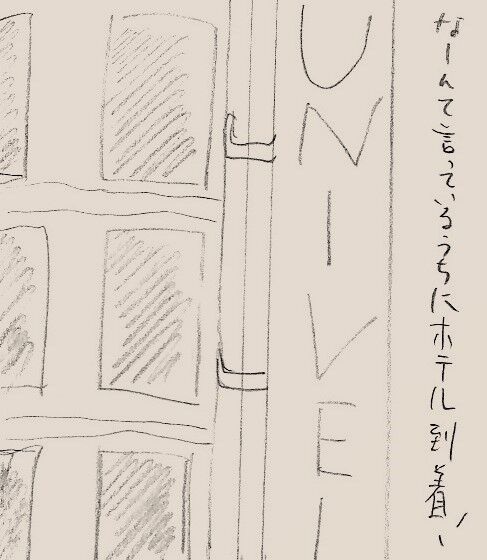 なーんて言っているうちにホテル到着!
UNIVE